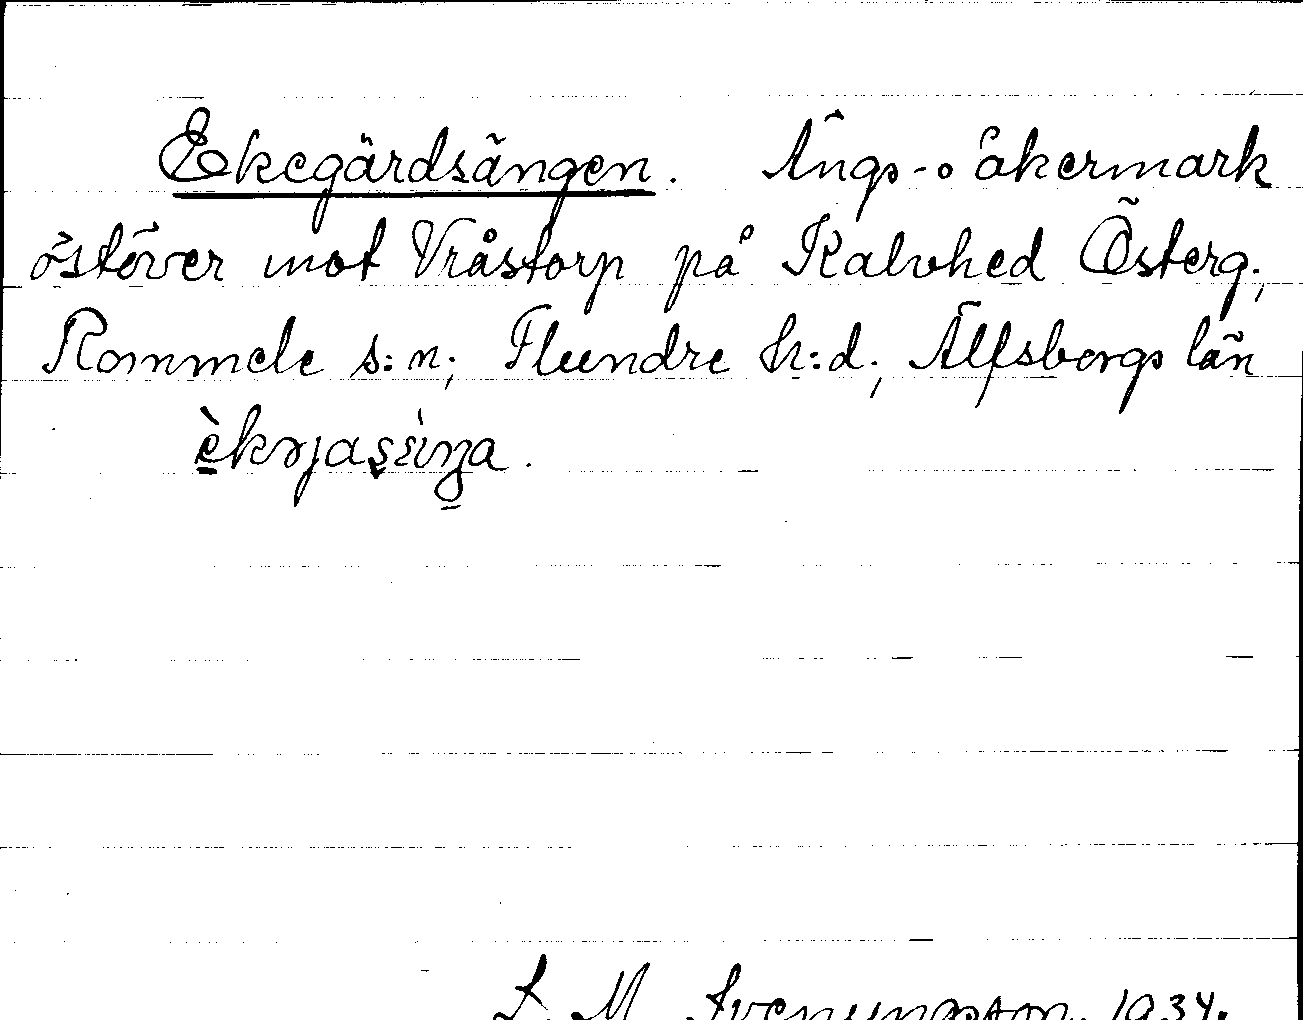 Ekegärdsängen. Ängs- o åkermark
österöver mot Vråstorp på Kalvhed Österg.,
Rommele s:n, Flundre h:d, Älfsborgs län
S. M. Svenungsson. 1934.